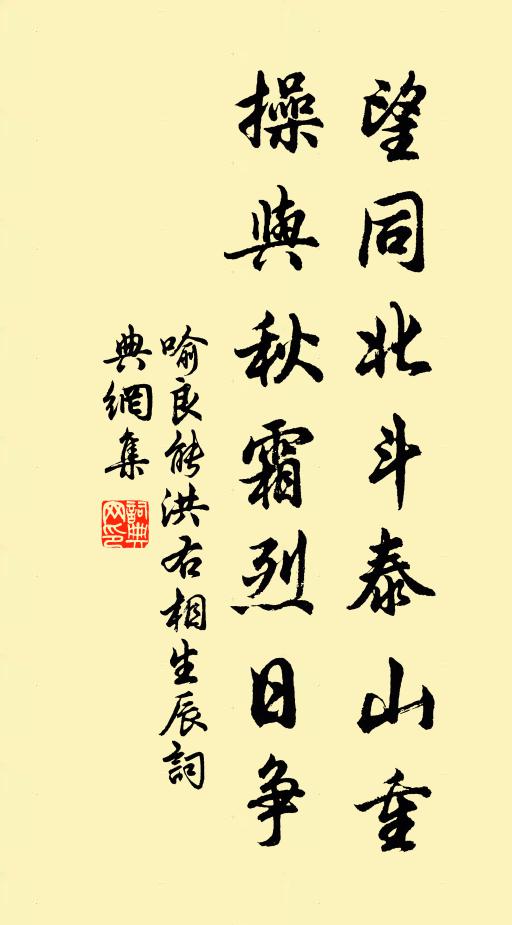 望同北斗泰山重
操與秋霜烈日争
喻良能洪右相生辰詞
典網集
詞典网印